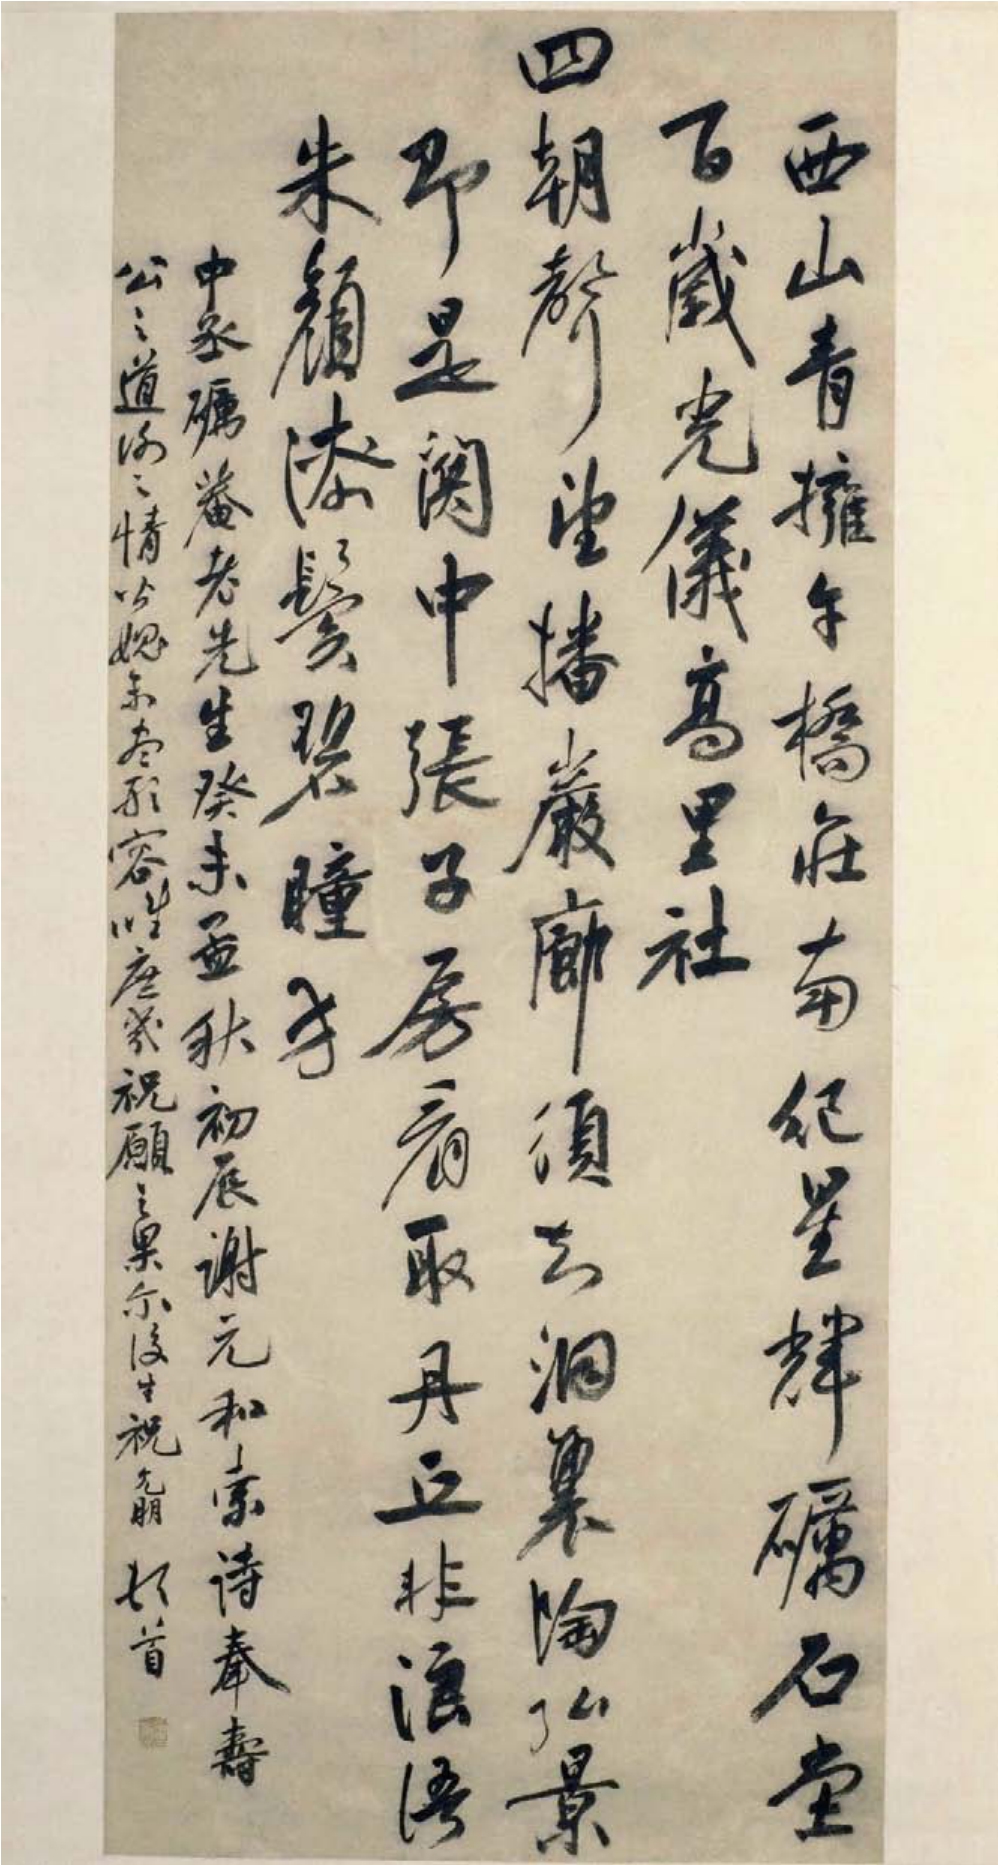 西山青擁午橋莊南紀星輝礪石堂
百歲光儀高里社
四朝聲望播巖廊須知洞裏陶弘景
即是關中張子房看取丹丘非浪語
朱顏漆鬢碧瞳方
中丞礪菴老先生癸未孟秋初辰謝元和索詩奉壽
公之道洽之情皆媿不盡形容惟庶幾祝願之果爾後生祝允明頓首